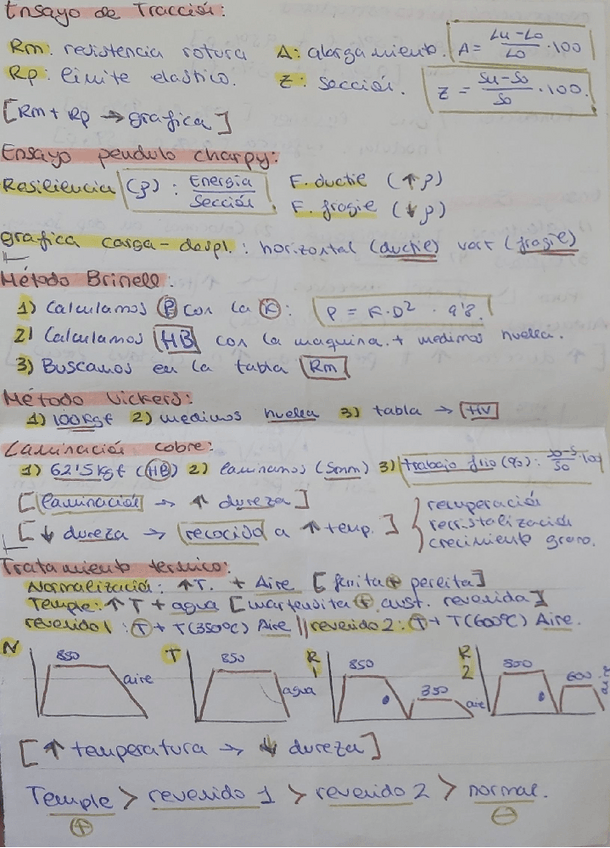 Ensayo de Tracción:
Rm: resistencia rotura A: alargamiento. A = Lu-Lo/Lo · 100
Rp: límite elástico. Z: sección. Z = Su-So/So · 100.
[Rm + Rp → grafica]
Ensayo pendulo charpy:
Resiliencia (ρ) : Energia/Sección F. ductil (↑ρ)
F. fragil (↓ρ)
grafica carga-despl. : horizontal (ductil) vert (fragil)
Método Brinell:
1) Calculamos P con la K: P = K·D² · 9'8.
2) Calculamos HB con la maquina. + medimos huella.
3) Buscamos en la tabla Rm
Método Vickers:
1) 100Kgf 2) medimos huella 3) tabla → HV
Laminación cobre:
1) 62'5kgf (HB) 2) laminamos (5mm) 3) trabajo frio (%): So-S/So · 100
[laminación → ↑ dureza]
[↓ dureza → recocido a ↑ temp.] { recuperación
recristalización
crecimiento grano.
Tratamiento termico:
Normalización: ↑T. + Aire [ferrita + perlita]
Temple: ↑T + agua [martensita + aust. revenida]
revenido 1: T + T(350ºC) Aire || revenido 2: T + T(600ºC) Aire.
N 850 aire T 850 agua R1 850 350 aire R2 800 600
[↑ temperatura → ↓ dureza]
Temple > revenido 1 > revenido 2 > normal.
+ −